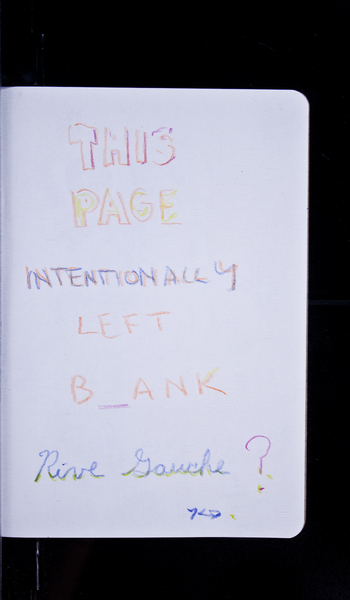 THIS
PAGE
INTENTIONALLY
LEFT
B_ANK
Rive Gauche ?